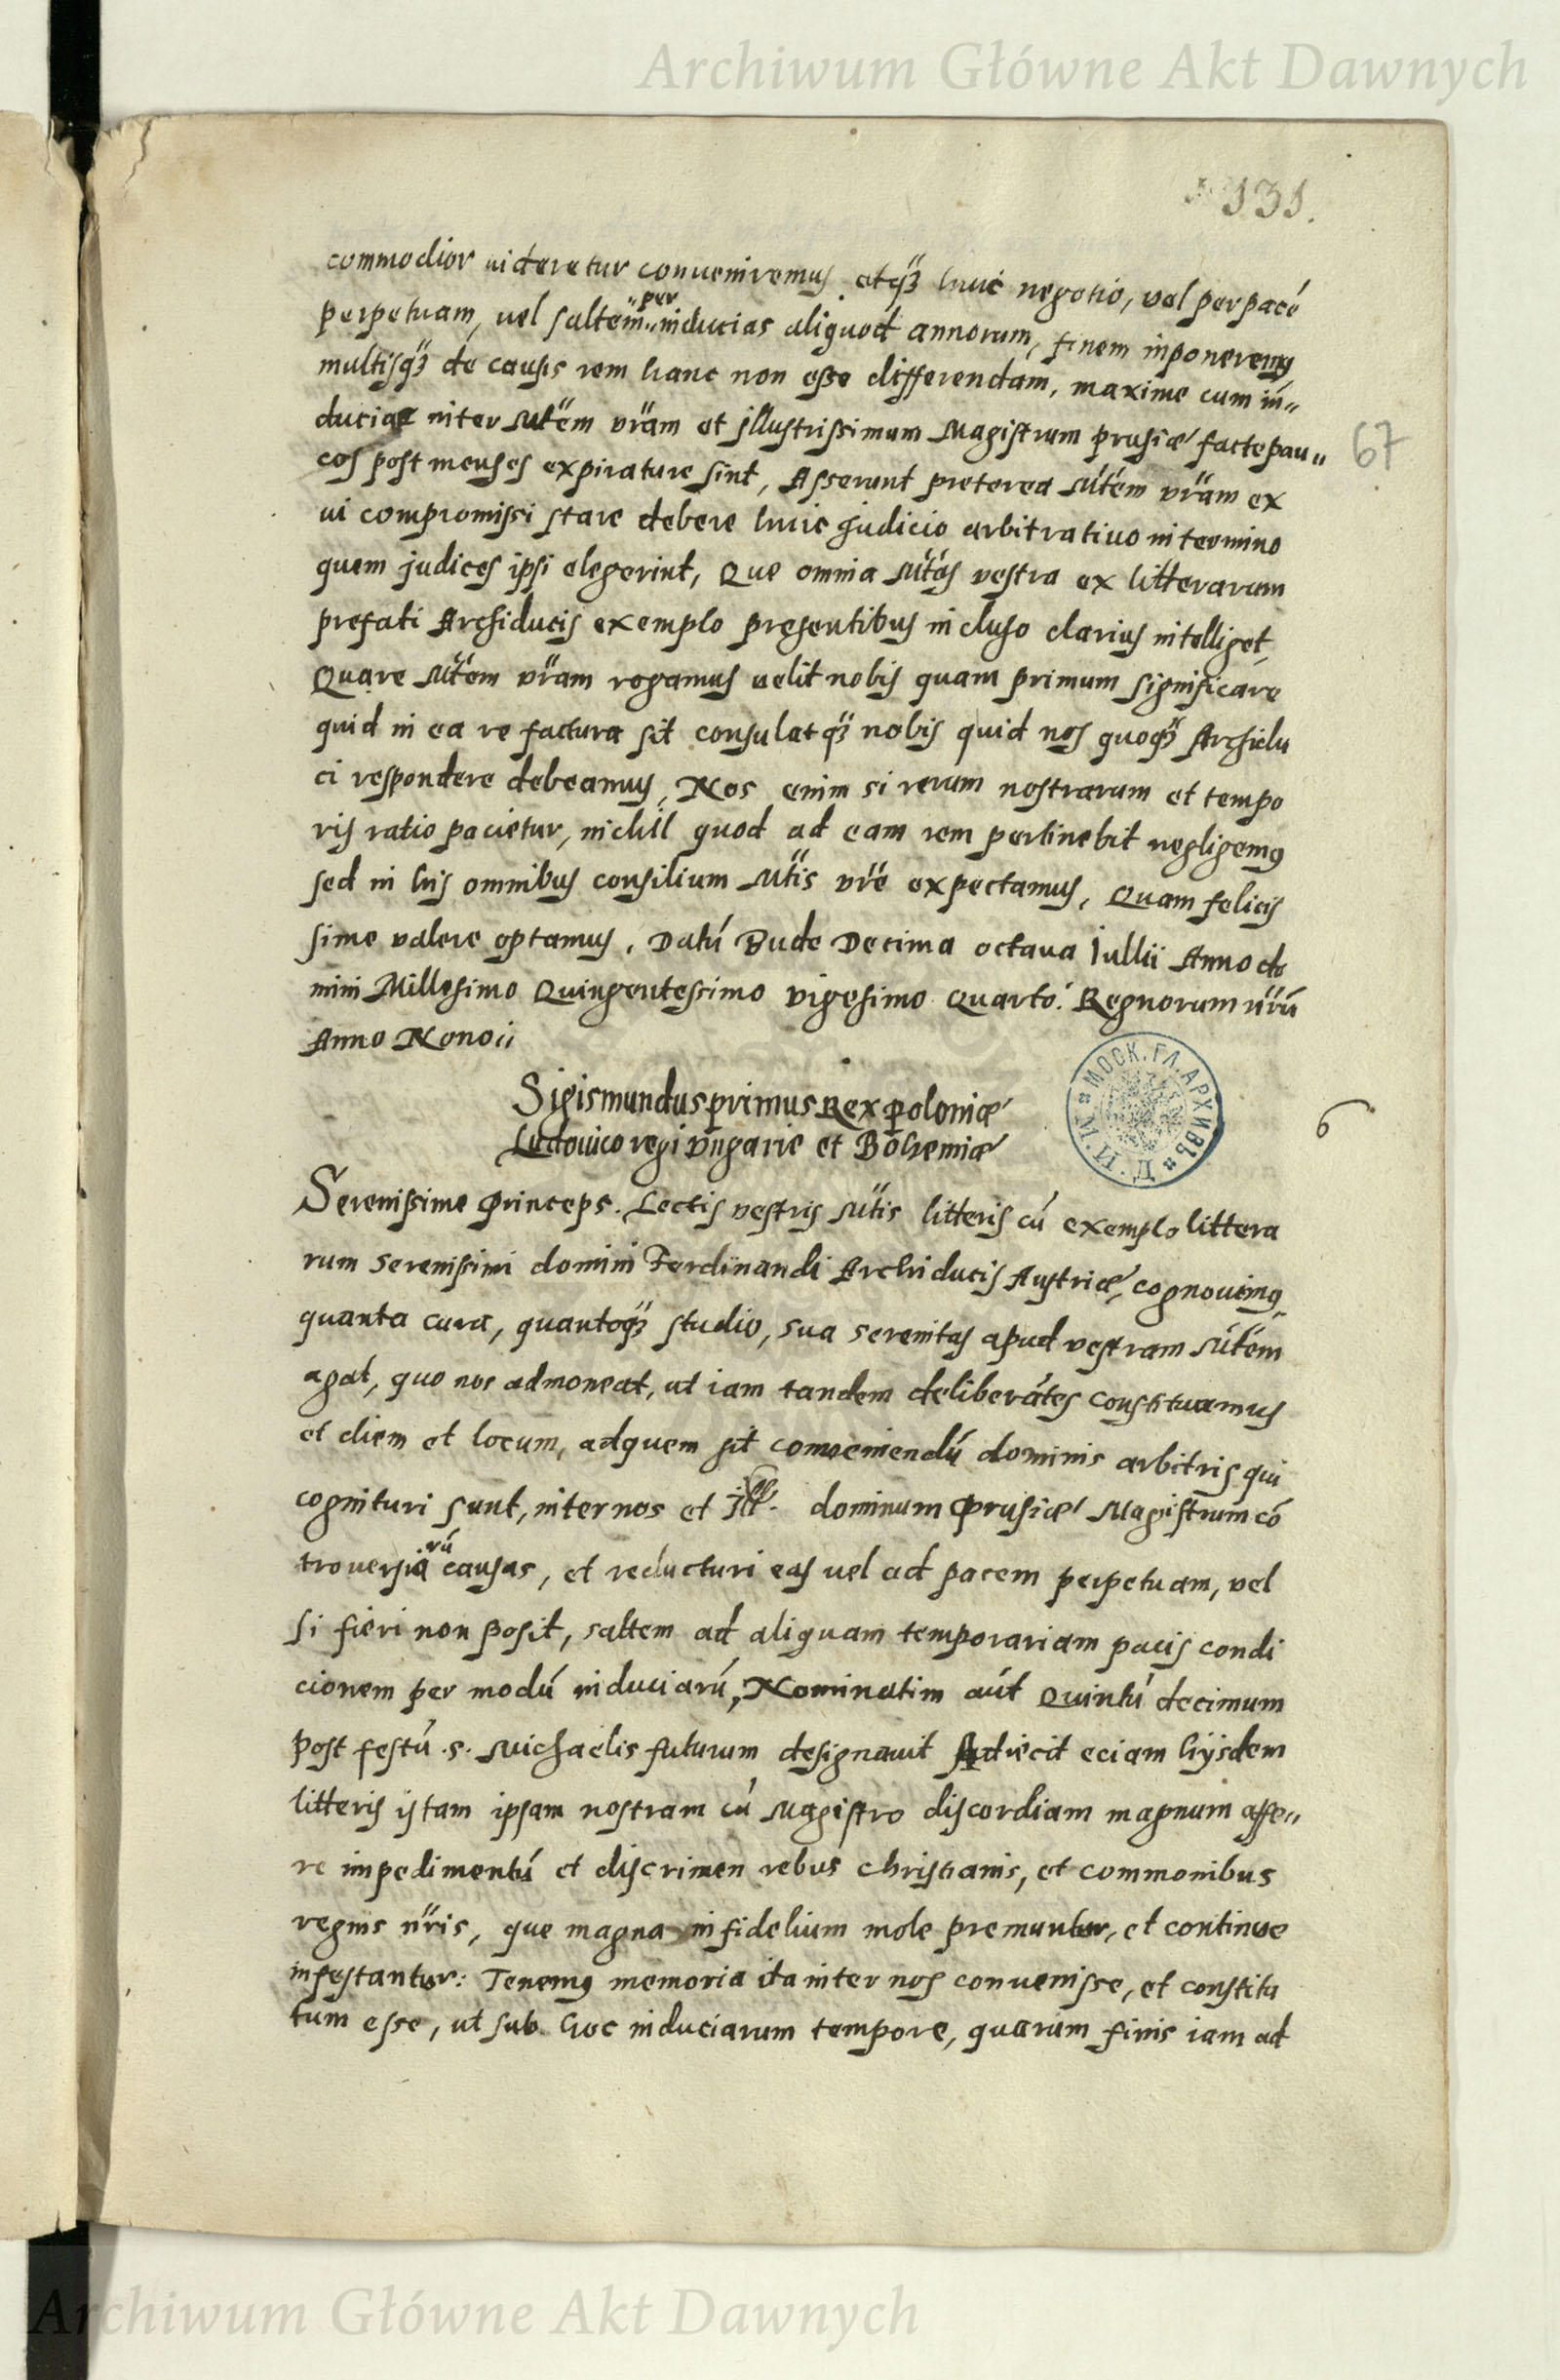 Archiwum Główne Akt Dawnych
131.
commodior uideretur conueniremus atq3 huic negotio, vel per pacē
perpetuam, vel saltem per inducias aliquod annorum, finem inponerem9
multisq3 de causis rem hanc non esse differendam, maxime cum in„
duciae inter Sūtem vr̃am et jllustrissimum Magistrum prusiæ facte pau„
67
cos post menses expirature sint, Asserunt preterea Sūtem vr̃am ex
ui compromissi stare debere huic judicio arbitratiuo in termino
quem judices ipsi elegerint, Que omnia Sūtas vestra ex litterarum
prefati Archiducis exemplo presentibus incluso clarius intelliget,
Quare Sūtem vr̃am rogamus uelit nobis quam primum significare
quid in ea re factura sit consulatq3 nobis quid nos quoq3 Archidu
ci respondere debeamus, Nos enim si rerum nostrarum et tempo
ris ratio pacietur, nichil quod ad eam rem pertinebit negligem9
sed in his omnibus consilium Sūtis vr̃e expectamus, Quam felicis
sime valere optamus, Datū Bude Decima octaua Iullii Anno do
mini Millesimo Quingentessimo vigesimo Quarto. Regnorum nr̃rū
Anno Nono
Sigismundus primus Rex poloniæ
Ludouico regi vngarie et Bohemiæ
МОСК. ГЛ. АРХИВЪ
6
Serenissime Princeps. Lectis vestris Sūtis litteris cū exemplo littera
rum serenissimi domini Ferdinandi Archiducis Austriæ, cognouim9,
quanta cura, quantoq3 studio, sua serenitas apud vestram Sūtem
agat, quo nos admoneat, ut iam tandem deliberātes constituamus
et diem et locum, ad quem sit conueniendū dominis arbitris qui
cognituri sunt, inter nos et Jll. dominum Prusiæ Magistrum cō
trouersiarū causas, et reducturi eas uel ad pacem perpetuam, vel
si fieri non posit, saltem ad aliquam temporariam pacis condi
cionem per modū induciarū, Nominatim aūt Quintū decimum
post festū .s. Michaelis futurum designauit Adiecit eciam hijsdem
litteris istam ipsam nostram cū Magistro discordiam magnum affe„
re impedimentū et discrimen rebus christianis, et commonibus
regnis nr̃is, que magna infidelium mole premuntur, et continue
infestantur: Tenem9 memoria ita inter nos conuenisse, et constitu
tum esse, ut sub hoc induciarum tempore, quarum finis iam ad
Archiwum Główne Akt Dawnych